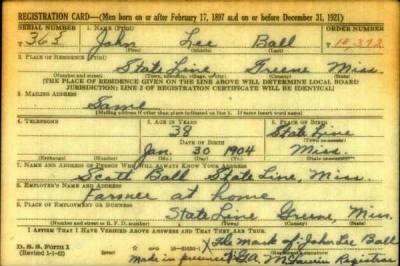 REGISTRATION CARD—(Men born on or after February 17, 1897 and on or before December 31, 1921)
SERIAL NUMBER 1. NAME (Print) ORDER NUMBER
T 363 John Lee Ball
(First) (Middle) (Last)
2. PLACE OF RESIDENCE (Print)
State Line Greene Miss.
(Number and street) (Town, township, village, or city) (County) (State)
[THE PLACE OF RESIDENCE GIVEN ON THE LINE ABOVE WILL DETERMINE LOCAL BOARD
JURISDICTION; LINE 2 OF REGISTRATION CERTIFICATE WILL BE IDENTICAL]
3. MAILING ADDRESS
Same
[Mailing address if other than place indicated on line 2. If same insert word same]
4. TELEPHONE 5. AGE IN YEARS 6. PLACE OF BIRTH
38 State Line
DATE OF BIRTH
Jan 30 1904 Miss.
(Exchange) (Number) (Mo.) (Day) (Yr.) (State or country)
7. NAME AND ADDRESS OF PERSON WHO WILL ALWAYS KNOW YOUR ADDRESS
Scott Ball State Line, Miss.
8. EMPLOYER'S NAME AND ADDRESS
Farmer at home
9. PLACE OF EMPLOYMENT OR BUSINESS
State Line Greene, Miss.
(Number and street or R. F. D. number) (Town) (County) (State)
I AFFIRM THAT I HAVE VERIFIED ABOVE ANSWERS AND THAT THEY ARE TRUE.
D. S. S. Form 1 X The mark of John Lee Ball
(Revised 1-1-42) made in presence of Registrar